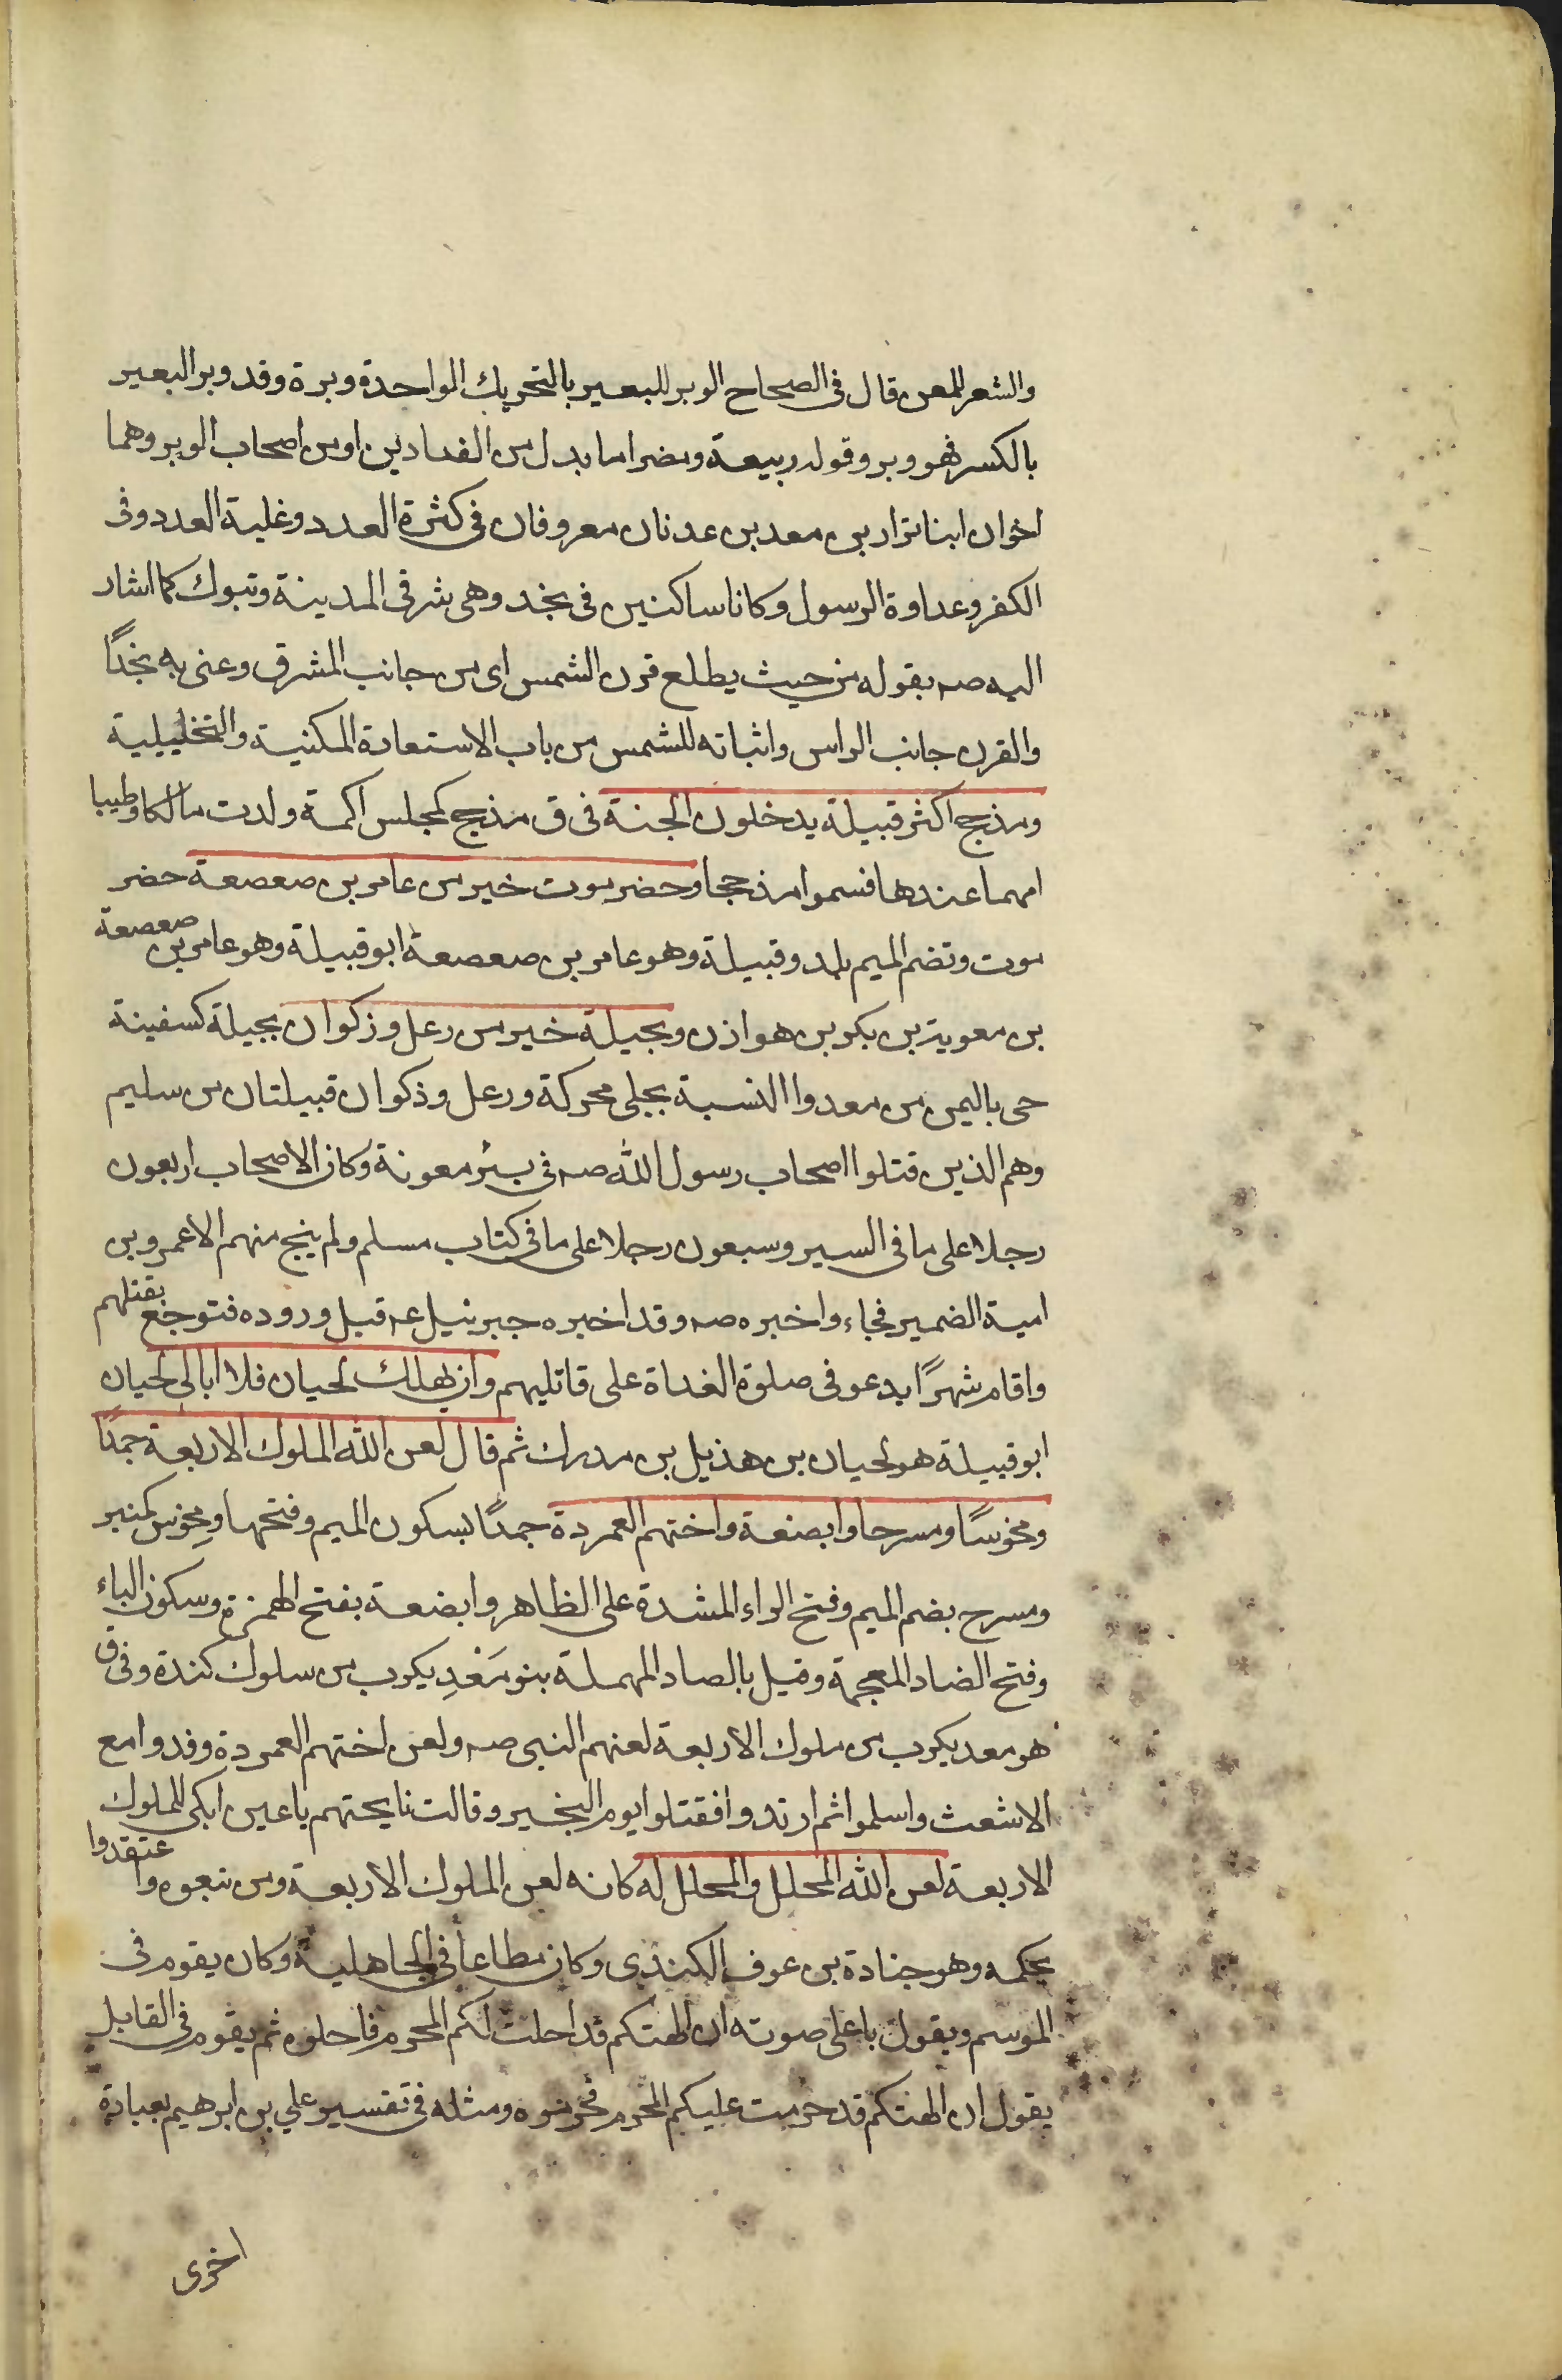 والشعر للمعز قال فى الصحاح الوبر للبعير بالتحريك الواحدة وبرة وقد وبر البعير
بالكسر فهو وبر وقوله ربيعة ومضر اما بدل من الفدادين او من اصحاب الوبر وهما
اخوان ابنا نزار بن معد بن عدنان معروفان فى كثرة العدد وغلبة العدد وفى
الكفر وعداوة الرسول وكانا ساكنين فى نجد وهى شرقى المدينة وتبوك كما اشار
اليه صه بقوله من حيث يطلع قرن الشمس اى من جانب المشرق وعنى به نجدًا
والقرن جانب الراس واثباته للشمس من باب الاستعارة المكنية والتخليلية
ومذحج اكثر قبيلة يدخلون الجنة فى ق مذحج كمجلس اكمة ولدت مالكا وطيبا
امهما عندها فسموا مذحجا وحضرموت خير من عامر بن صعصعة حضر
موت وتضم الميم بلد وقبيلة وهو عامر بن صعصعة ابو قبيلة وهو عامر بن صعصعة
بن معوية بن بكر بن هوازن وبجيلة خير من رعل وزكوان بجيلة كسفينة
حى باليمن من معد والنسبة بجلى محركة ورعل وذكوان قبيلتان من سليم
وهم الذين قتلوا اصحاب رسول الله صه فى بئر معونة وكان الاصحاب اربعون
رجلا على ما فى السير وسبعون رجلا على ما فى كتاب مسلم ولم ينج منهم الا عمرو بن
امية الضمير فجاء واخبره صه وقد اخبره جبرئيل عه قبل وروده فتوجع بقتلهم
واقام شهرًا يدعو فى صلوة الغداة على قاتليهم وان يهلك لحيان فلا ابالى لحيان
ابو قبيلة هو لحيان بن هذيل بن مدرك ثم قال لعن الله الملوك الاربعة جمدًا
ومخوسًا ومسرحا وابضعة واختهم العمردة جمدًا بسكون الميم وفتحها ومِخوس كمنبر
ومسرح بضم الميم وفتح الراء المشدة على الظاهر وابضعة بفتح الهمزة وسكون الباء
وفتح الضاد المعجمة وقيل بالصاد المهملة بنو مَعْدِيكرب من سلوك كندة وفى ق
هو معديكرب من ملوك الاربعة لعنهم النبى صه ولعن اختهم العمردة وفدوا مع
الاشعث واسلموا ثم ارتدوا فقتلوا يوم النجير وقالت نايحتهم ياعين ابكى للملوك
الاربعة لعن الله المحلل والمحلل له كانه لعن الملوك الاربعة ومن تبعوه واعتقدوا
بحكمه وهو جنادة بن عوف الكندى وكان مطاعا فى الجاهلية وكان يقوم فى
الموسم ويقول باعلى صوته ان الهتكم قد احلت لكم المحرم فاحلوه ثم يقوم فى القابل
يقول ان الهتكم قد حرمت عليكم المحرم فحرموه ومثله فى تفسير علي بن ابرهيم بعبارة
اخرى